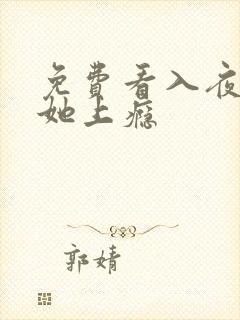 免費看入夜
她上癮
郭婧